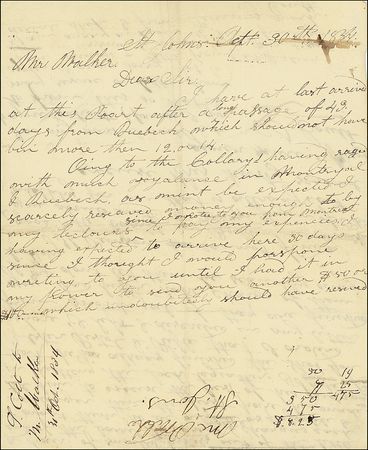 St Johns. Sept. 30th 1834
Mr Walker.
Dear Sir.
I have at last arrived
at this Poart after a long passage of 43.
days from Quebech which should not have
bin more then 12. or 14.
Oing to the Collary having raged
with much voyalance in Montreyal
& Quebech, as mint be expected, I
scarcely reserved money enough by
my lectours since I wrote to you from Montreal to pay my expences, I
having expected to arrive here 30 days
since I thought I would porspone
writing to you until I had it in
my power to send you another $50 or
which undoubitedly should have reseived
S Colt to
Mr Walker
1834
Mr
St Jons.
30 19
9 25
550 475
475
$8.25